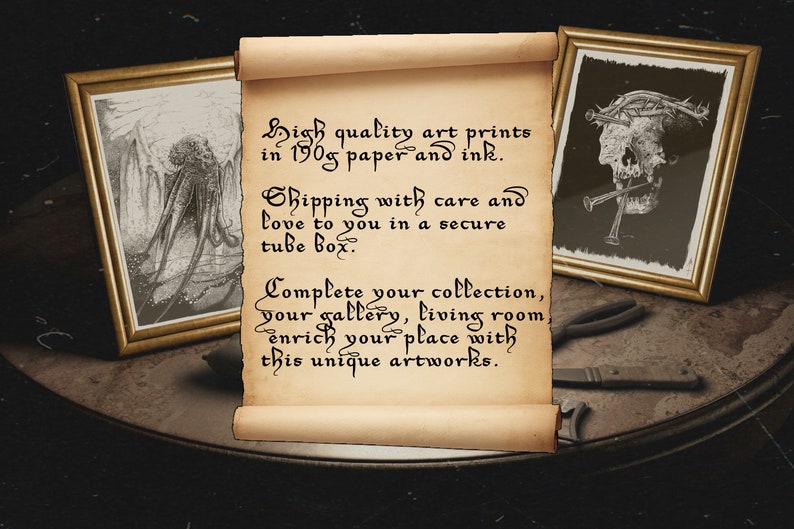 High quality art prints
in 190g paper and ink.
Shipping with care and
love to you in a secure
tube box.
Complete your collection,
your gallery, living room,
enrich your place with
this unique artworks.